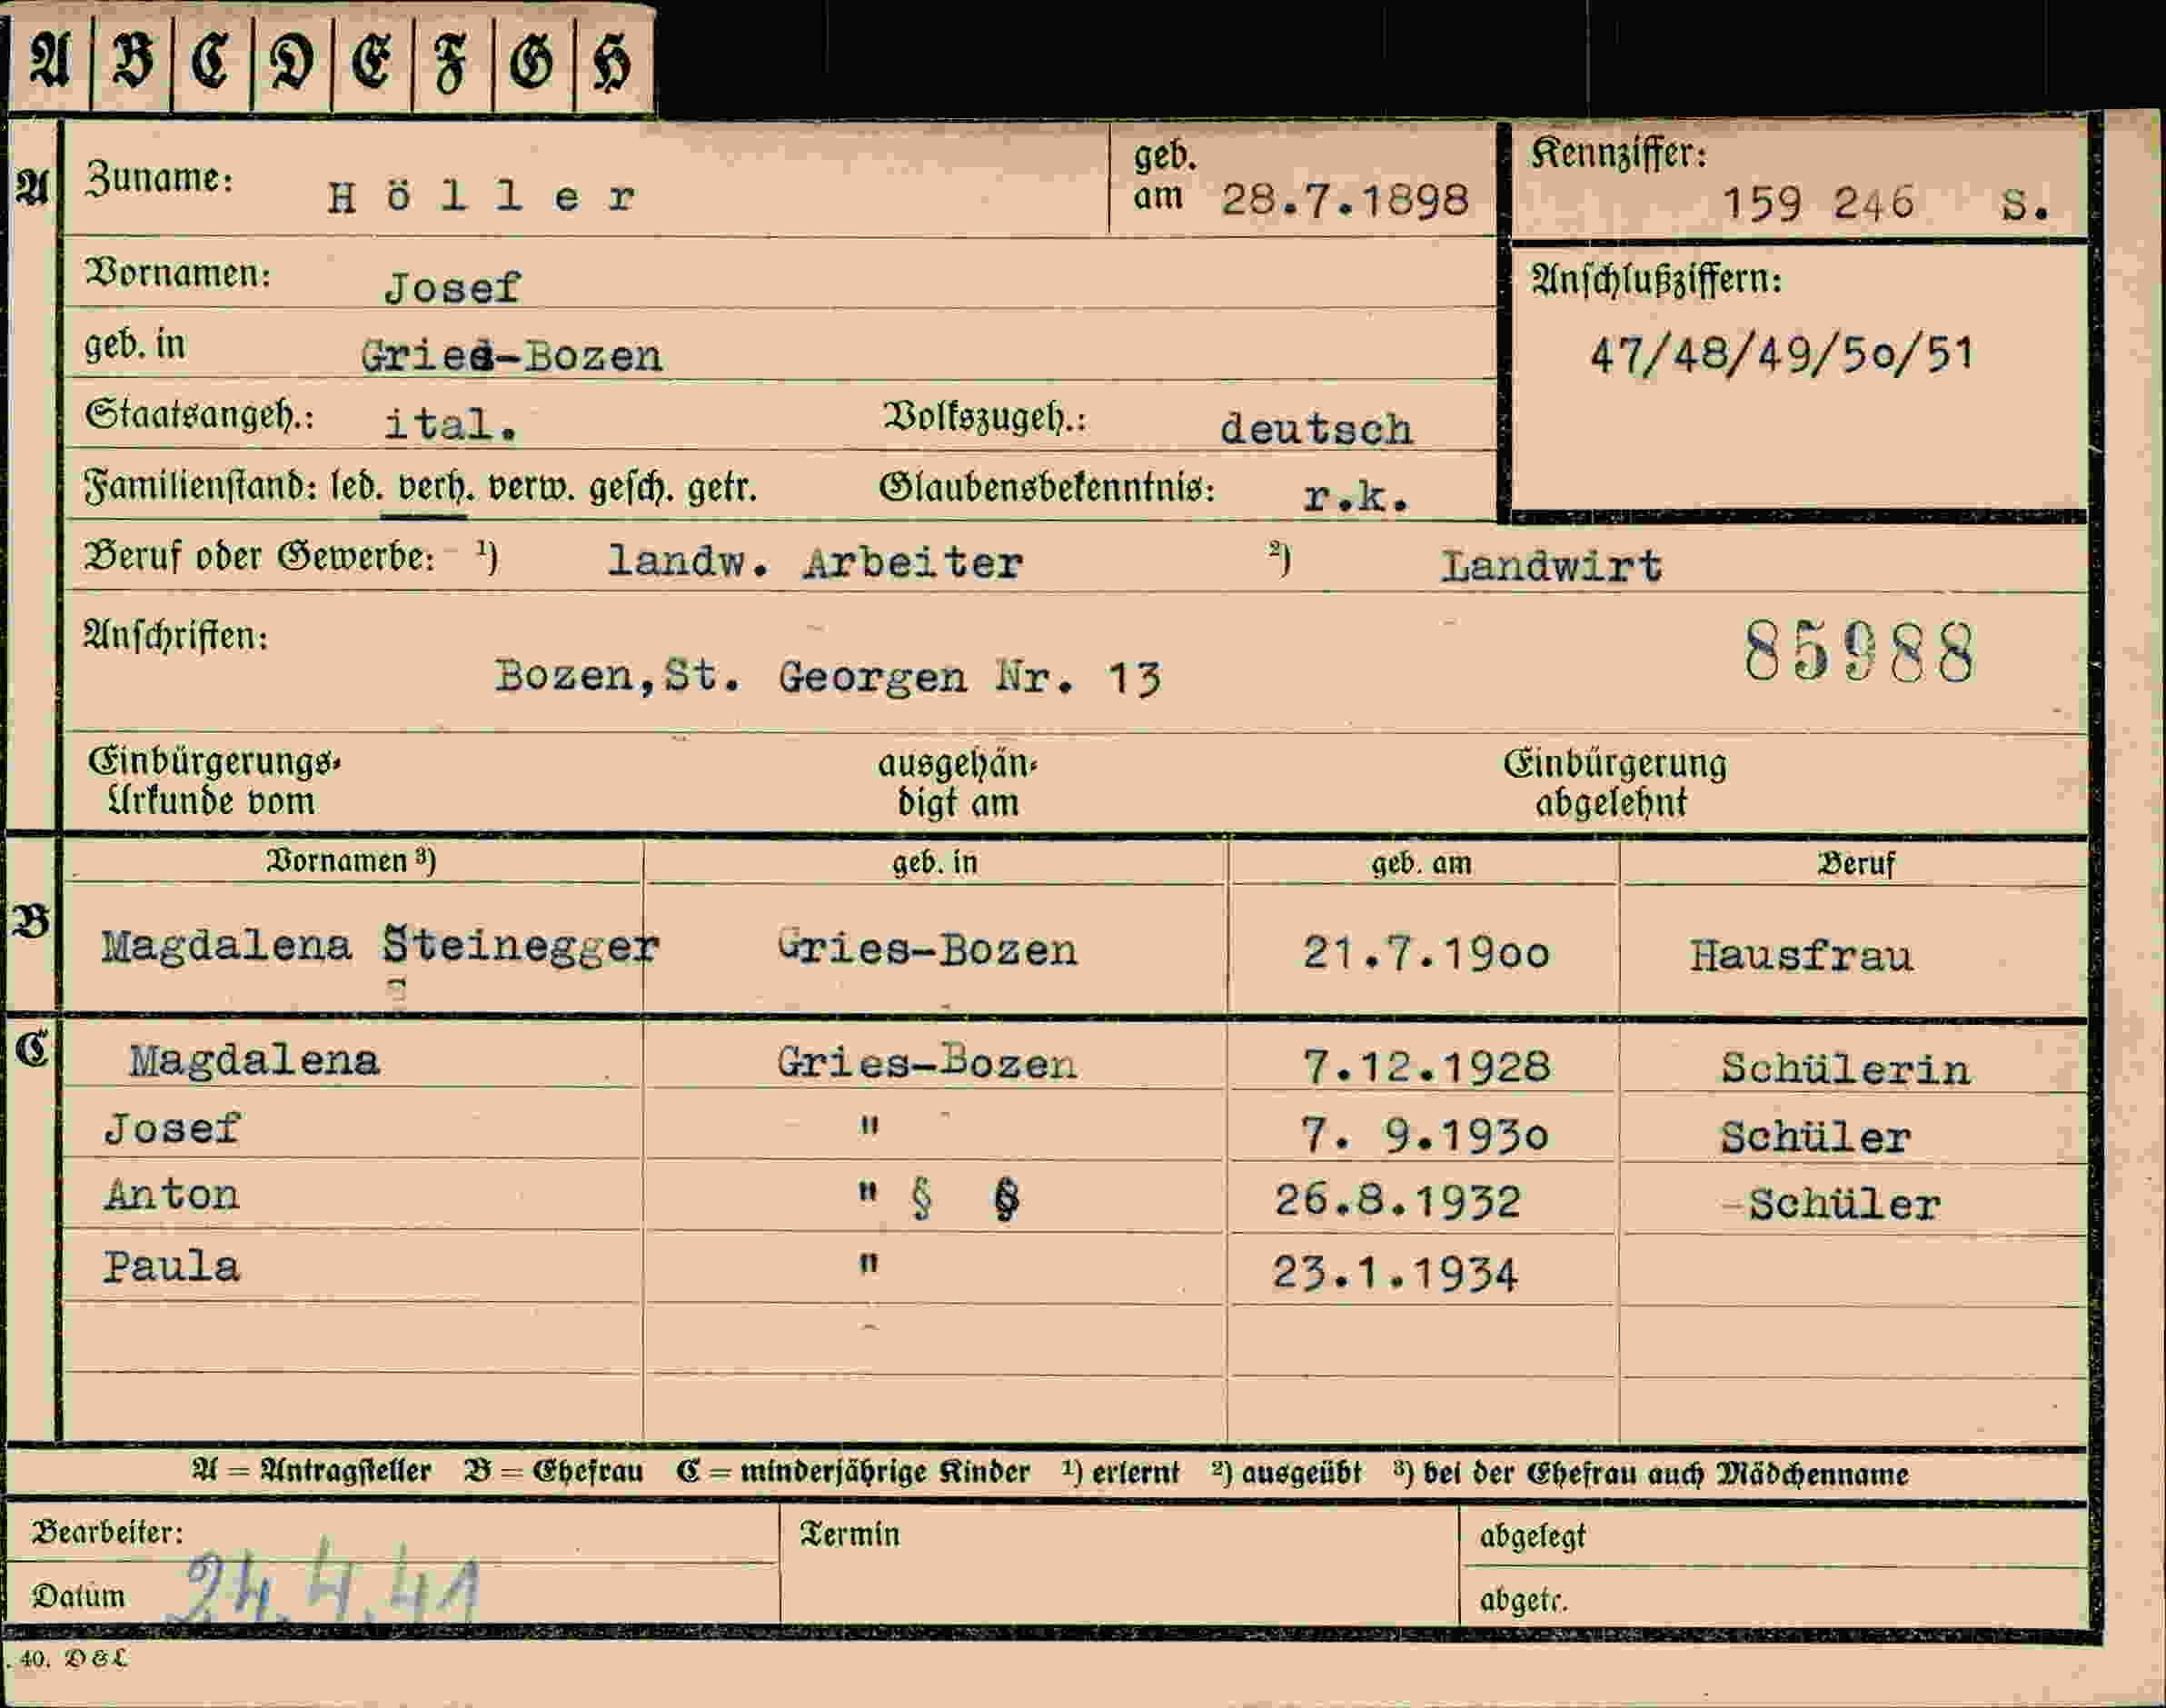 A B C D E F G H
A Zuname: Höller geb. am 28.7.1898 Kennziffer: 159 246 S.
Vornamen: Josef Anschlußziffern:
geb. in Gries-Bozen 47/48/49/50/51
Staatsangeh.: ital. Volkszugeh.: deutsch
Familienstand: led. verh. verw. gesch. getr. Glaubensbekenntnis: r.k.
Beruf oder Gewerbe: 1) landw. Arbeiter 2) Landwirt
Anschriften: 85988
Bozen,St. Georgen Nr. 13
Einbürgerungs- ausgehän- Einbürgerung
Urkunde vom digt am abgelehnt
Vornamen 3) geb. in geb. am Beruf
B Magdalena Steinegger Gries-Bozen 21.7.1900 Hausfrau
C Magdalena Gries-Bozen 7.12.1928 Schülerin
Josef " 7. 9.1930 Schüler
Anton " § § 26.8.1932 -Schüler
Paula " 23.1.1934
A = Antragsteller B = Ehefrau C = minderjährige Kinder 1) erlernt 2) ausgeübt 3) bei der Ehefrau auch Mädchenname
Bearbeiter: Termin abgelegt
Datum 24.4.41 abgetr.
. 40. D & L